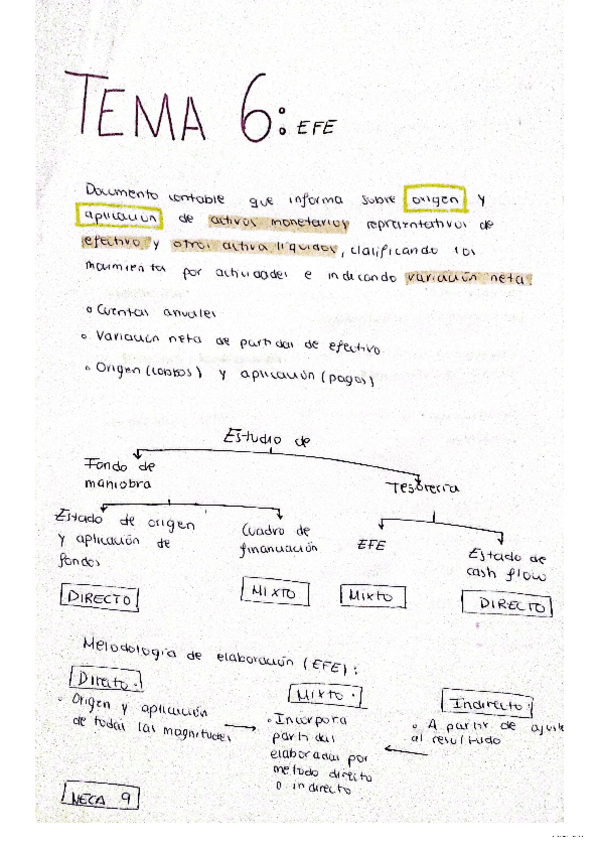 TEMA 6: EFE
Documento contable que informa sobre origen y
aplicación de activos monetarios representativos de
efectivo y otros activos líquidos, clasificando los
movimientos por actividades e indicando variación neta
• Cuentas anuales
• Variación neta de partidas de efectivo
• Origen (cobros) y aplicación (pagos)
Estudio de
Fondo de
maniobra
Tesorería
Estado de origen
y aplicación de
fondos
DIRECTO
Cuadro de
financiación
MIXTO
EFE
MIXTO
Estado de
cash flow
DIRECTO
Metodología de elaboración (EFE):
Directo:
• Origen y aplicación
de todas las magnitudes
Mixto:
• Incorpora
partidas
elaboradas por
metodo directo
o indirecto
Indirecto:
• A partir de ajuste
al resultado
NECA 9